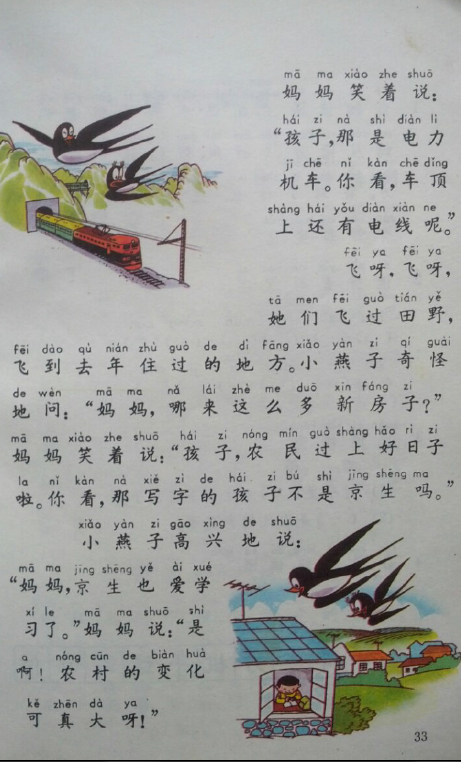 mā ma xiào zhe shuō
妈妈笑着说：
hái zi nà shì diàn lì
“孩子，那是电力
jī chē nǐ kàn chē dǐng
机车。你看，车顶
shàng hái yǒu diàn xiàn ne
上还有电线呢。”
fēi ya fēi ya
飞呀，飞呀，
tā men fēi guò tián yě
她们飞过田野，
fēi dào qù nián zhù guò de dì fāng xiǎo yàn zi qí guài
飞到去年住过的地方。小燕子奇怪
de wèn mā ma nǎ lái zhè me duō xīn fáng zi
地问：“妈妈，哪来这么多新房子？”
mā ma xiào zhe shuō hái zi nóng mín guò shàng hǎo rì zi
妈妈笑着说：“孩子，农民过上好日子
la nǐ kàn nà xiě zì de hái zi bú shì jīng shēng ma
啦。你看，那写字的孩子不是京生吗。”
xiǎo yàn zi gāo xìng de shuō
小燕子高兴地说：
mā ma jīng shēng yě ài xué
“妈妈，京生也爱学
xí le mā ma shuō shì
习了。”妈妈说：“是
a nóng cūn de biàn huà
啊！农村的变化
kě zhēn dà ya
可真大呀！”
33